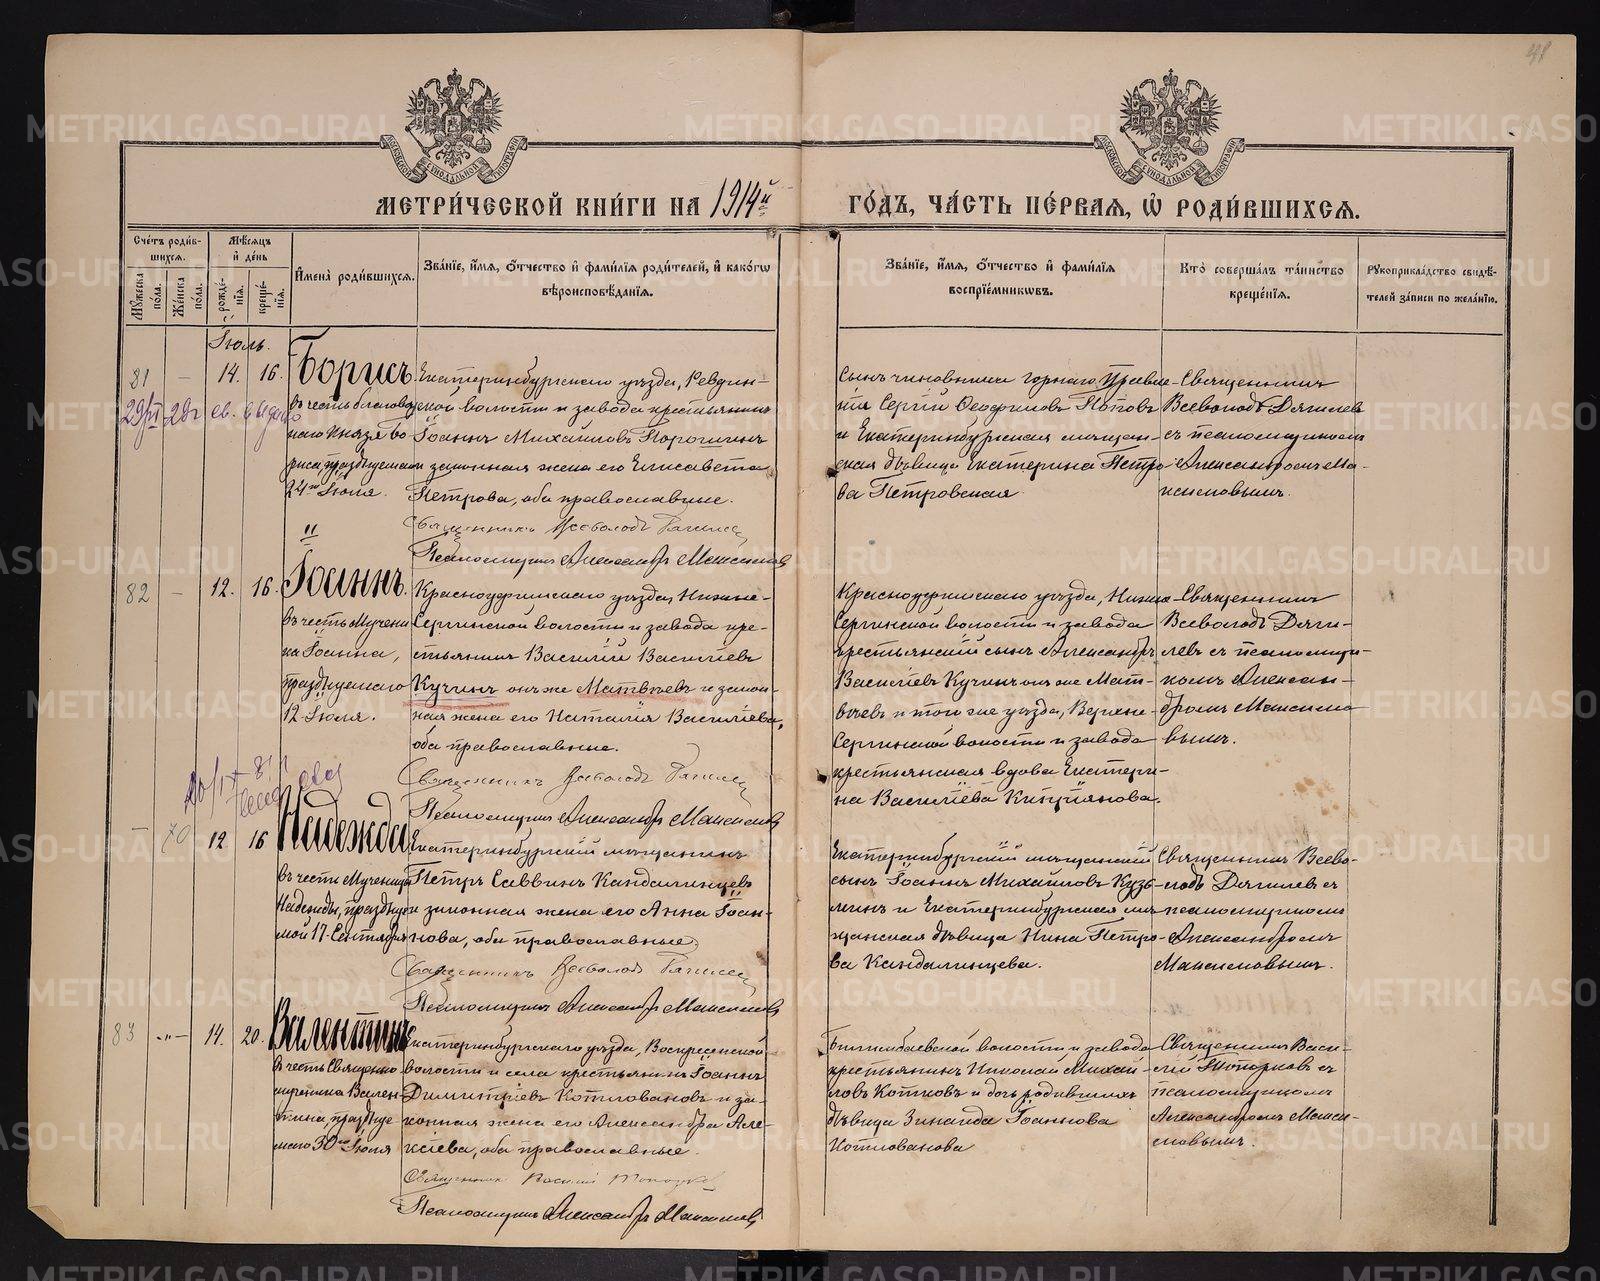 48
МЕТРИ́ЧЕСКОЙ КНИ́ГИ НА 1914й ГО́ДЪ, ЧА́СТЬ ПЕ́РВАЯ, Ѡ РОДИ́ВШИХСЯ.
МОСКОВСКОЙ СѴНОДАЛЬНОЙ ТИПОГРАФІИ
МОСКОВСКОЙ СѴНОДАЛЬНОЙ ТИПОГРАФІИ
Сче́тъ роди́вшихся.
Мꙋжеска по́ла.
Же́нска по́ла.
Мѣ́сяцъ и҆ де́нь
рожде́нїя.
креще́нїя.
И҆мена̀ роди́вшихся.
Зва́нїе, и҆́мя, ѻ҆́тчество и҆ фами́лїя роди́телей, и҆ како́гѡ вѣроисповѣ́данїя.
Зва́нїе, и҆́мя, ѻ҆́тчество и҆ фами́лїя воспрїе́мникѡвъ.
Кто̀ соверша́лъ та́инство креще́нїя.
Рꙋкоприкла́дство свидѣ́телей за́писи по жела́нїю.
Іюль.
81 — 14. 16. Борисъ
въ честь благовѣрнаго Князя Бориса, празднуемаго
24го Іюля.
Екатеринбургскаго уѣзда, Ревдин-
ской волости и завода крестьянинъ
Іоаннъ Михайловъ Порошинъ
и законная жена его Елисавета
Петрова, оба православные.
Священникъ Всеволодъ Дягилевъ
Псаломщикъ Александръ Максимовъ
Сынъ чиновника горнаго Правле-
нія Сергій Ѳеофиловъ Поповъ
и Екатеринбургская мѣщан-
ская дѣвица Екатерина Петро-
ва Петровская.
Священникъ
Всеволодъ Дягилевъ
съ псаломщикомъ
Александромъ Ма-
ксимовымъ.
82 — 12. 16. Іоаннъ.
въ честь Мучени-
ка Іоанна,
празднуемаго
12 Іюля.
Красноуфимскаго уѣзда, Нижне-
Сергинской волости и завода кре-
стьянинъ Василій Васильевъ
Кучинъ онъ же Матвѣевъ и закон-
ная жена его Наталія Васильева,
оба православные.
Священникъ Всеволодъ Дягилевъ
Псаломщикъ Александръ Максимовъ
Красноуфимскаго уѣзда, Нижне-
Сергинской волости и завода
крестьянскій сынъ Александръ
Васильевъ Кучинъ онъ же Мат-
вѣевъ и того же уѣзда, Верхне-
Сергинской волости и завода
крестьянская вдова Екатери-
на Васильева Кипріянова.
Священникъ
Всеволодъ Дяги-
левъ съ псаломщи-
комъ Алексан-
дромъ Максимо-
вымъ.
— 70 12 16 Надежда
въ честь Мученицы
Надежды, празднуе-
мой 17 Сентября
Екатеринбургскій мѣщанинъ
Петръ Саввинъ Кандалинцевъ
и законная жена его Анна Іоан-
нова, оба православные.
Священникъ Всеволодъ Дягилевъ
Псаломщикъ Александръ Максимовъ
Екатеринбургскій мѣщанскій
сынъ Іоаннъ Михайловъ Кузь-
минъ и Екатеринбургская мѣ-
щанская дѣвица Нина Петро-
ва Кандалинцева.
Священникъ Всево-
лодъ Дягилевъ съ
псаломщикомъ
Александромъ
Максимовымъ.
83 —"— 14. 20. Валентинъ
въ честь Священно-
мученика Вален-
тина, праздне-
маго 30го Іюля
Екатеринбургскаго уѣзда, Воскресенской
волости и села крестьянинъ Іоаннъ
Димитріевъ Котловановъ и за-
конная жена его Александра Але-
ксіева, оба православные.
Священникъ Василій
Псаломщикъ Александръ Максимовъ
Билимбаевской волости и завода
крестьянинъ Николай Михай-
ловъ Котковъ и дочь родившихъ
дѣвица Зинаида Іоаннова
Котлованова
Священникъ Васи-
лій съ
псаломщикомъ
Александромъ Макси-
мовымъ.
METRIKI.GASO-URAL.RU